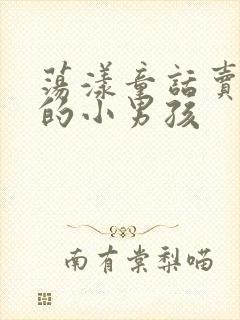 蕩漾童話賣
的小男孩
南有棠梨喵